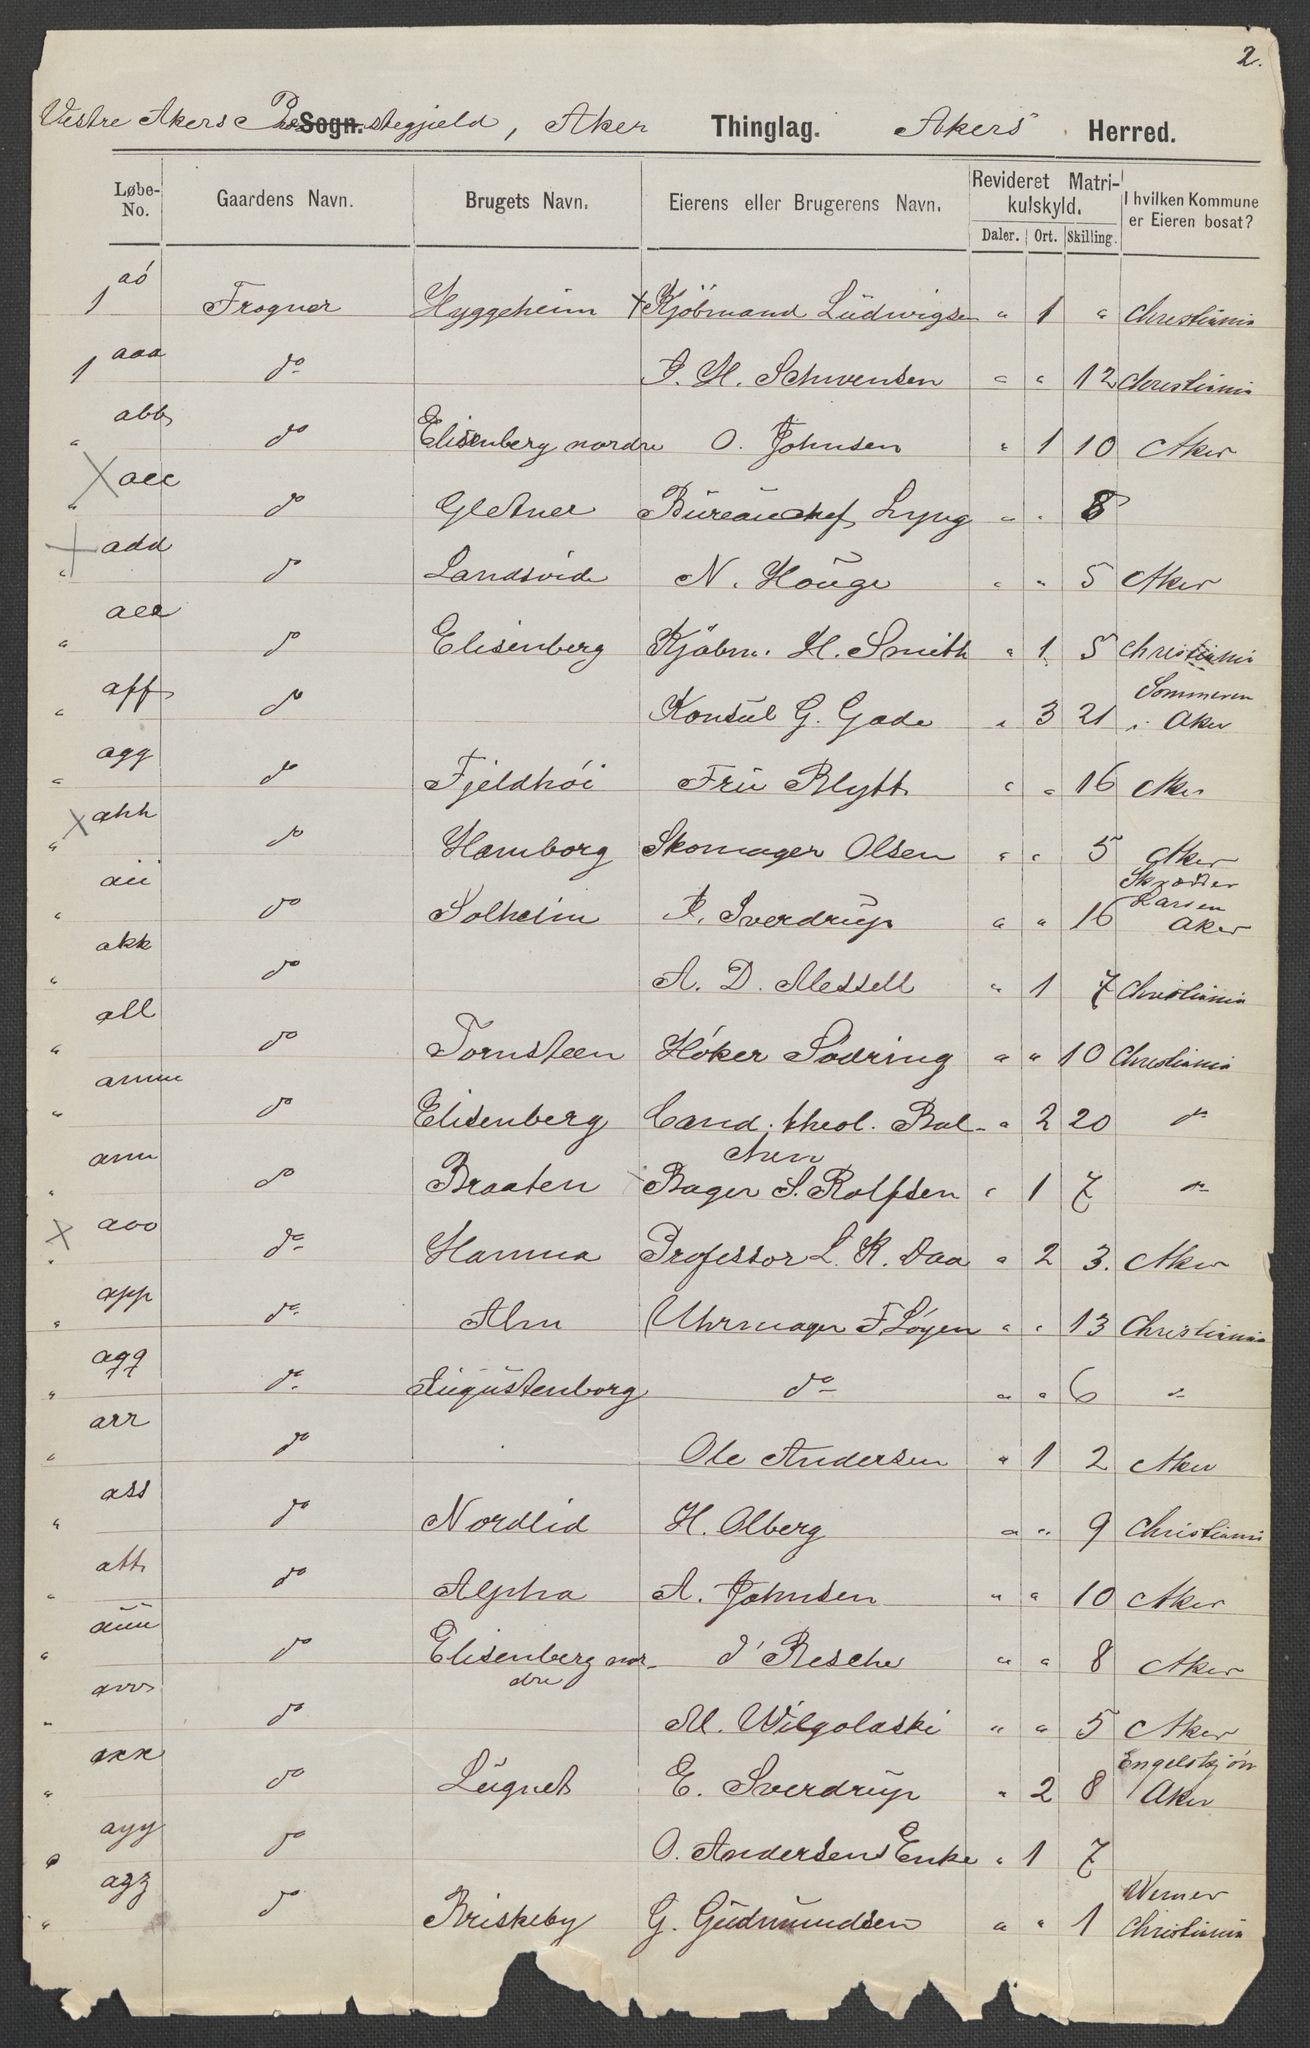 2.
Vestre Akers Præstegjeld, Aker Thinglag. Akers Herred.
Sogn.
Løbe-No. Gaardens Navn. Brugets Navn. Eierens eller Brugerens Navn. Revideret Matrikulskyld. I hvilken Kommune er Eieren bosat?
Daler. Ort. Skilling.
1 aö Frogner Hyggeheim + Kjöbmand Ludwigsen " 1 " Christiania
1 aaa do P. H. Schwensen " " 12 Christiania
" abb do Elisenberg nordre O. Johnsen " 1 10 Aker
X " acc do Bureauchef Lyng " " 8
+ " add do Landsvide N. Houge " " 5 Aker
" aee do Elisenberg Kjöbm. H. Smith " 1 5 Christiania
" aff do Konsul G. Gade " 3 21 Sommeren i Aker
" agg do Fjeldhöi Fru Blytt " " 16 Aker
X " ahh do Hamborg Skomager Olsen " " 5 Aker
" aii do Solheim P. Sverdrup " " 16 Skrædder Larsen Aker
" akk do A. D. Messell " 1 7 Christiania
" all do Tornsteen Höker Södring " " 10 Christiania
" amm do Elisenberg Cand. theol. Bal- " 2 20 do
chen
" ann do Braaten Bager S. Rolfsen " 1 7 do
X " aoo do Hamna Professor L. K. Daa " 2 3. Aker
" app do Alm Uhrmager F Löyen " " 13 Christiania
" aqq do Augustenborg do " " 6 do
" arr do Ole Andersen " 1 2 Aker
" ass do Nordlid H. Olberg " " 9 Christiania
" att do Alpha A. Johnsen " " 10 Aker
" auu do Elisenberg nor- d' Resche " " 8 Aker
dre
" avv do M. Wilgolaski " " 5 Aker
" axx do Lugnet E. Sverdrup " 2 8 Aker
" ayy do O. Andersens Enke " 1 7
" azz do Briskeby G. Gudmundsen " " 1 Werner Christiania